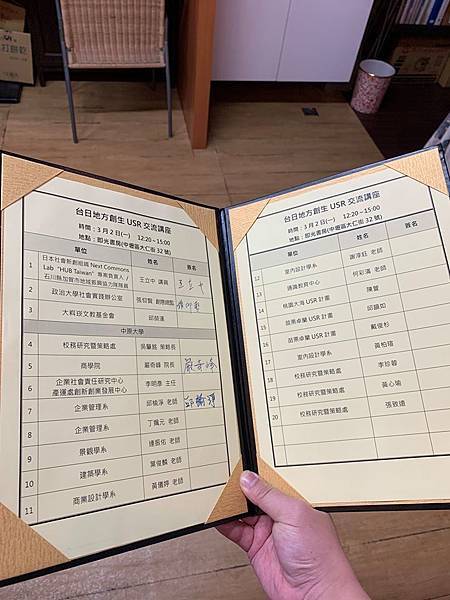 打餅乾
台日地方創生 USR 交流講座
時間：3月2日(一) 12:20~15:00
地點：即光書房(中壢區大仁街32號)
單位 姓名 簽名
1 日本社會新創組織 Next Commons Lab "HUB Taiwan" 專案負責人/石川縣加賀市地域教育協力隊隊員 王立中 講員 王立中
2 政治大學社會實踐辦公室 張仰賢 創辦總監
3 大料崁文教基金會 邱榮漢
中原大學
4 校務研究暨策略處 吳肇銘 策略長
5 商學院 嚴奇峰 院長 嚴奇峰
6 企業社會責任研究中心 產團處創新創業發展中心 李明彥 主任
7 企業管理系 邱榆淨 老師 邱榆淨
8 企業管理系 丁姵元 老師
9 景觀學系 連振佑 老師
10 建築學系 葉俊麟 老師
11 商業設計學系 黃儀婷 老師
台日地方創生 USR 交流講座
時間：3月2日(一) 12:20~15:00
地點：即光書房(中壢區大仁街32號)
單位 姓名 簽名
12 室內設計學系 謝淳鈺 老師
13 通識教育中心 何彩滿 老師
14 桃園大海 USR 計畫 陳萱
15 苗栗卓蘭 USR 計畫 邱韻如
16 苗栗卓蘭 USR 計畫 戴俊杉
17 室內設計學系 黃柏瑨
18 校務研究暨策略處 李珍蓉
19 校務研究暨策略處 黃心瑜
20 校務研究暨策略處 張致遠